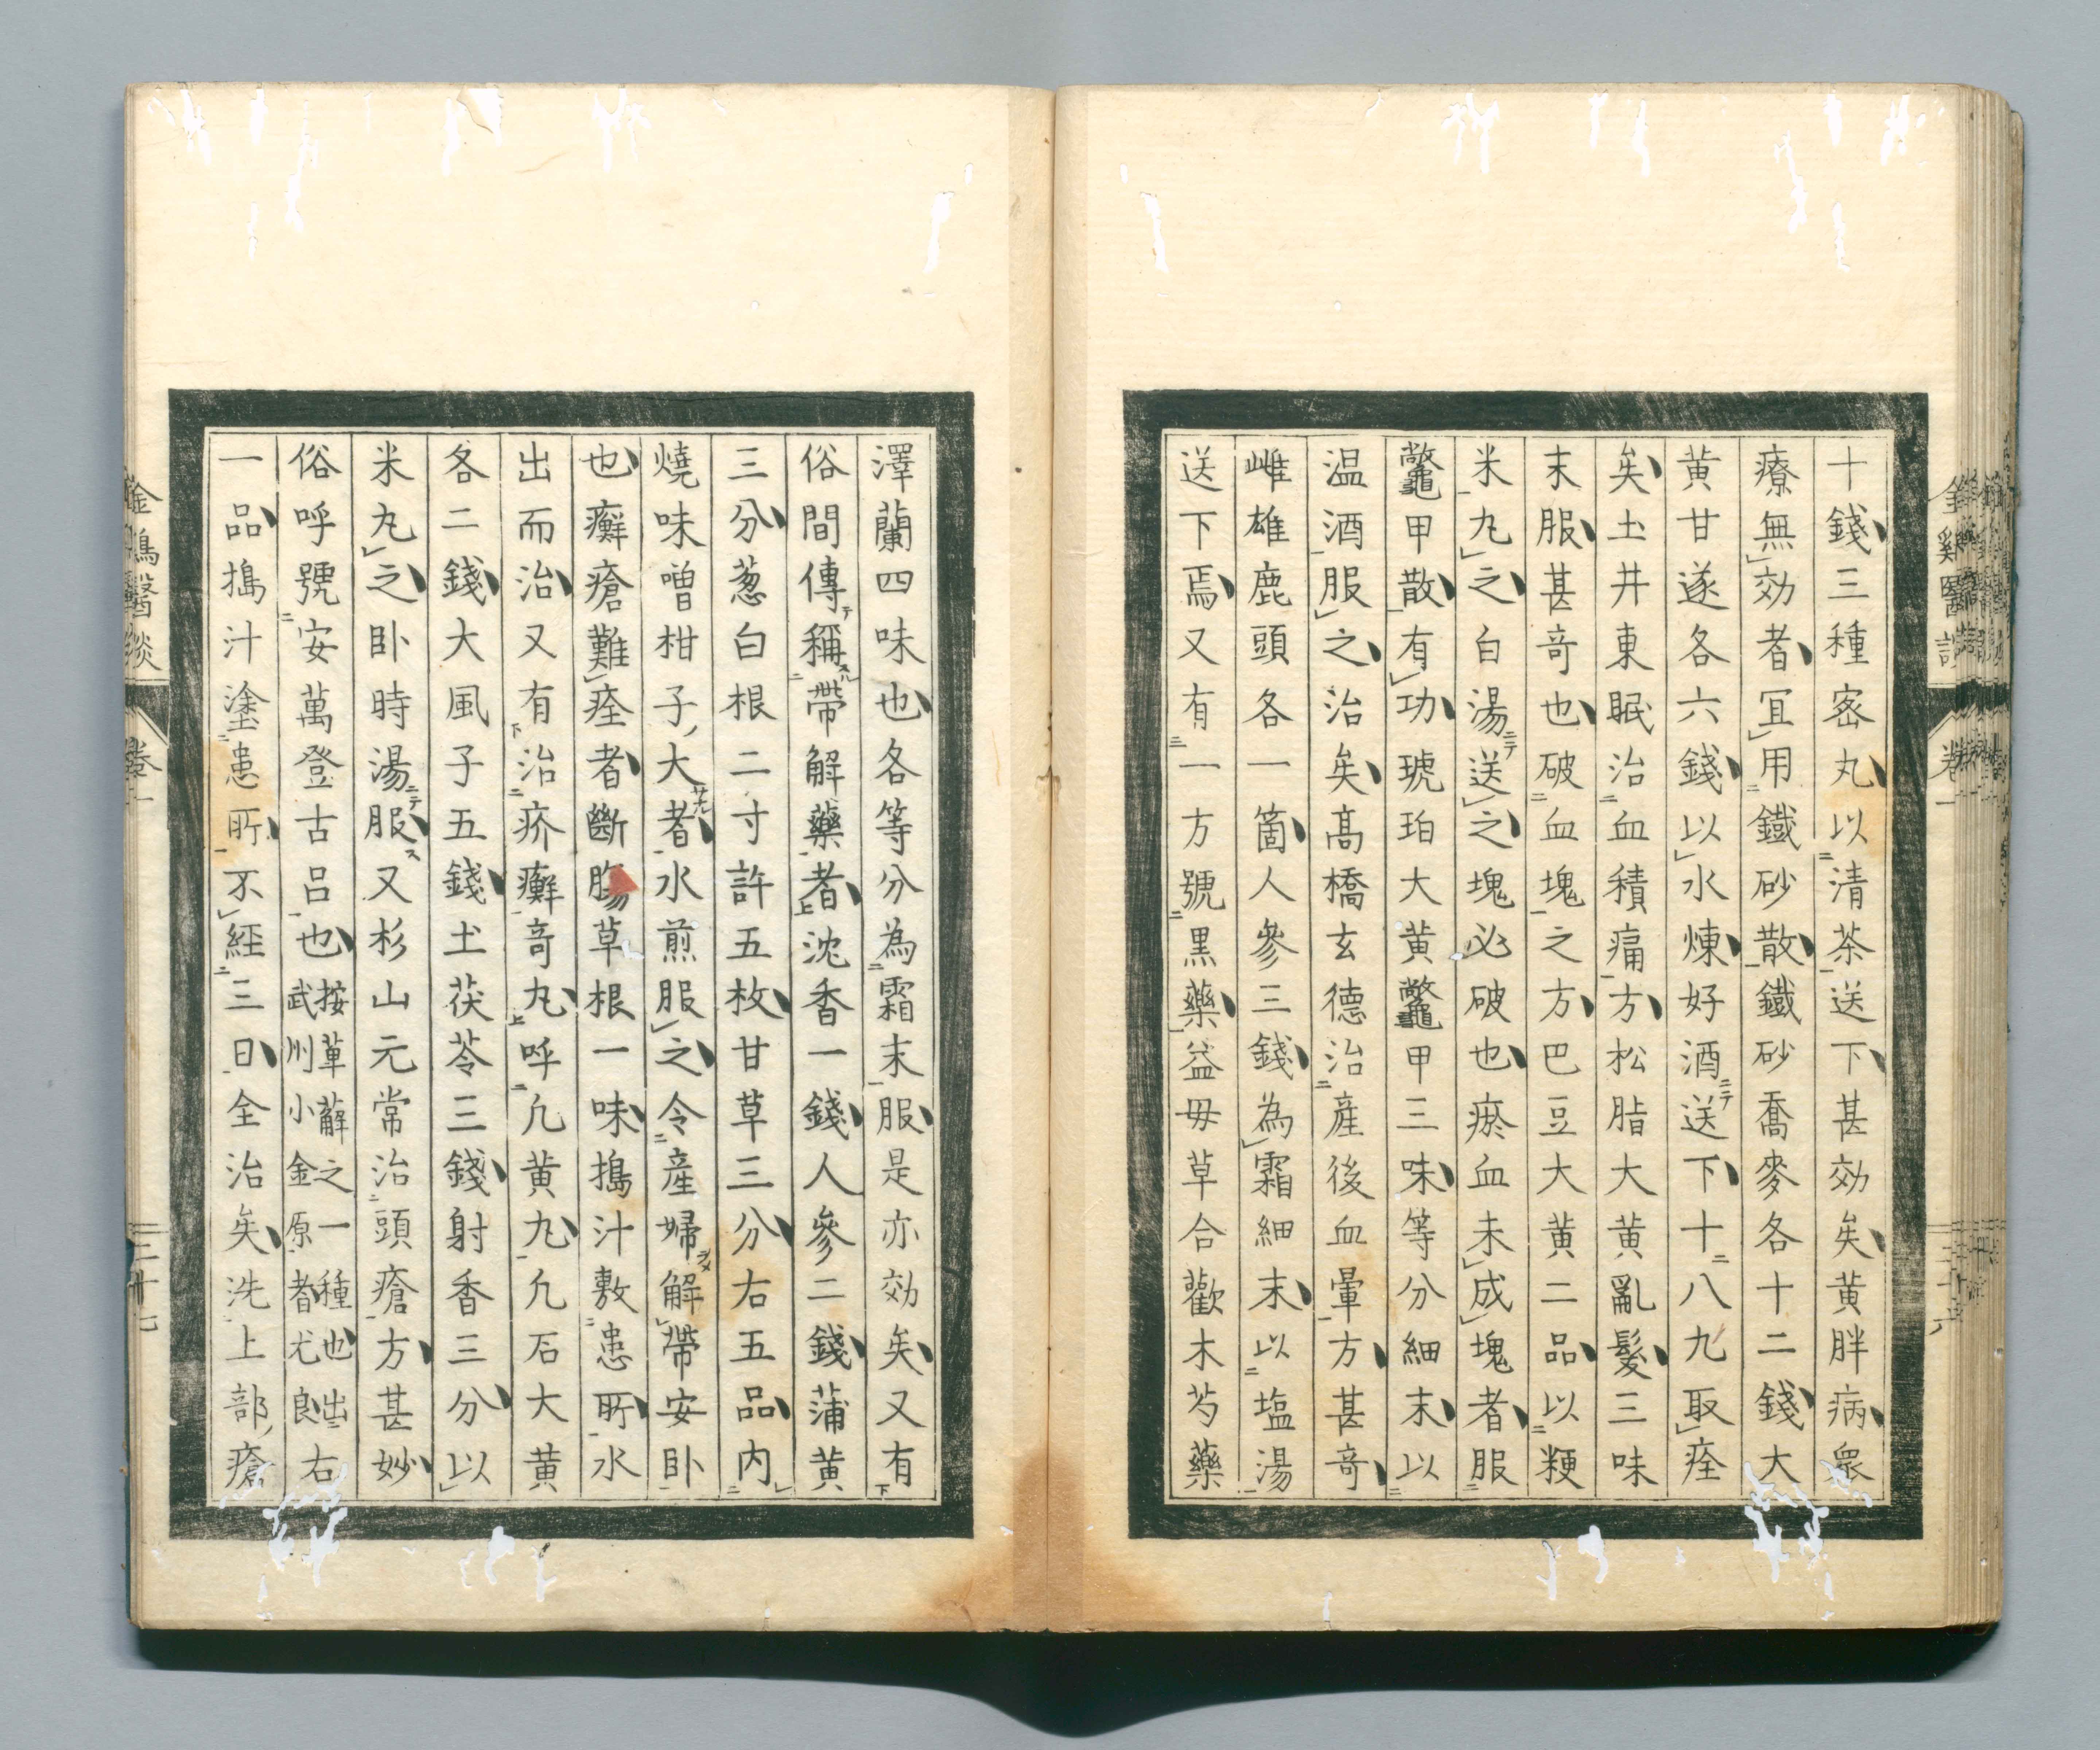 十錢三種密丸以清茶送下甚効矣黄胖病衆
療無効者宜用鐵砂散鐵砂喬麥各十二錢大
黄甘遂各六錢以水煉好酒送下十八九取痊
矣土井東眠治血積痛方松脂大黄亂髮三味
末服甚竒也破血塊之方巴豆大黄二品以粳
米丸之白湯送之塊必破也瘀血未成塊者服
鼈甲散有功琥珀大黄鼈甲三味等分細末以
温酒服之治矣髙橋玄德治産後血暈方甚竒
雌雄鹿頭各一箇人參三錢為霜細末以塩湯
送下焉又有一方號黒藥益毋草合歡木芍藥
澤蘭四味也各等分為霜末服是亦効矣又有
俗間傳稱帶解藥者沈香一錢人參二錢蒲黄
三分葱白根二寸許五枚甘草三分右五品内
燒味噌柑子大者水煎服之令産婦解帶安卧
也癬瘡難痊者斷腸草根一味搗汁敷患所水
出而治又有治疥癬竒丸呼凢黄丸凢石大黄
各二錢大風子五錢土茯苓三錢射香三分以
米丸之卧時湯服又杉山元常治頭瘡方甚妙
俗呼號安萬登古呂也按萆薢之一種也出武州小金原者尤良右
一品搗汁塗患所不經三日全治矣洗上部瘡
金雞醫談 卷一 二十六
金鷄醫談 卷一 二十七